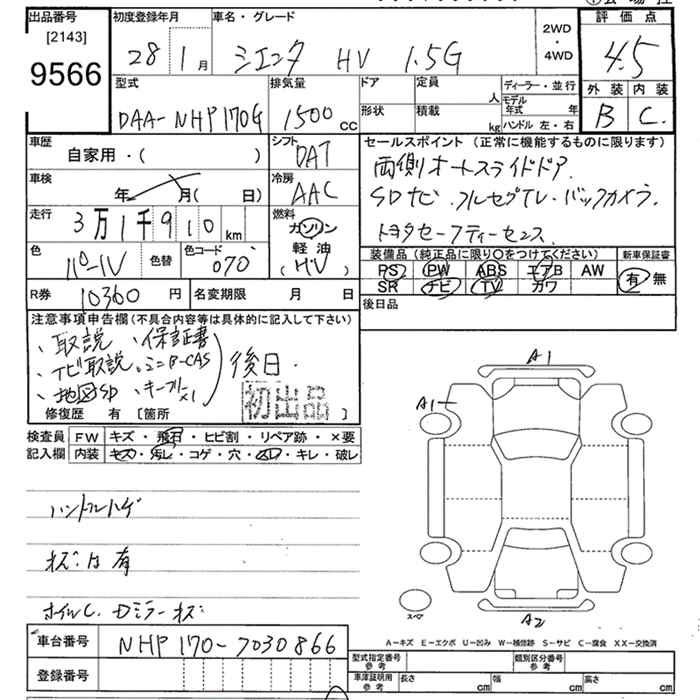 出品番号
[2143]
9566
初度登録年月
28 1 月
車名・グレード
シエンタ HV 1.5G
2WD
・
4WD
評価点
4.5
外装 内装
B C
型式
DAA-NHP170G
排気量
1500 cc
ドア
形状
定員 人
積載 kg
ディーラー・並行
モデル年式 年
ハンドル 左・右
車歴
自家用・( )
シフト
DAT
車検
年 月( 日)
冷房
AAC
走行
3万1千910 km
燃料
ガソリン
軽油
(HV)
色
パール
色替
色コード
070
R券
10360 円
名変期限 月 日
セールスポイント (正常に機能するものに限ります)
両側オートスライドドア.
SDナビ.フルセグTV.バックカメラ.
トヨタセーフティーセンス.
装備品(純正品に限り○をつけてください)
PS PW ABS エアB AW
SR ナビ TV カワ
新車保証書
有 無
後日品
注意事項申告欄(不具合内容等は具体的に記入して下さい)
、取説 、保証書
、ナビ取説 、ミニB-CAS
、地図SD 、キーフリーx1
後日.
初出品
修復歴 有 [箇所 ]
検査員記入欄
FW キズ・飛石・ヒビ割・リペア跡・×要
内装 キズ・汚レ・コゲ・穴・スレ・キレ・破レ
ハンドルハゲ
キズ:は 有
ホイルC. Dミラーキズ
A1
A1
A2
スペア
A-キズ E-エクボ U-凹み W-補修跡 S-サビ C-腐食 XX-交換済
車台番号
NHP170-7030866
登録番号
型式指定番号 参考
類別区分番号 参考
車庫証明用 参考
長さ cm 幅 cm 高さ cm